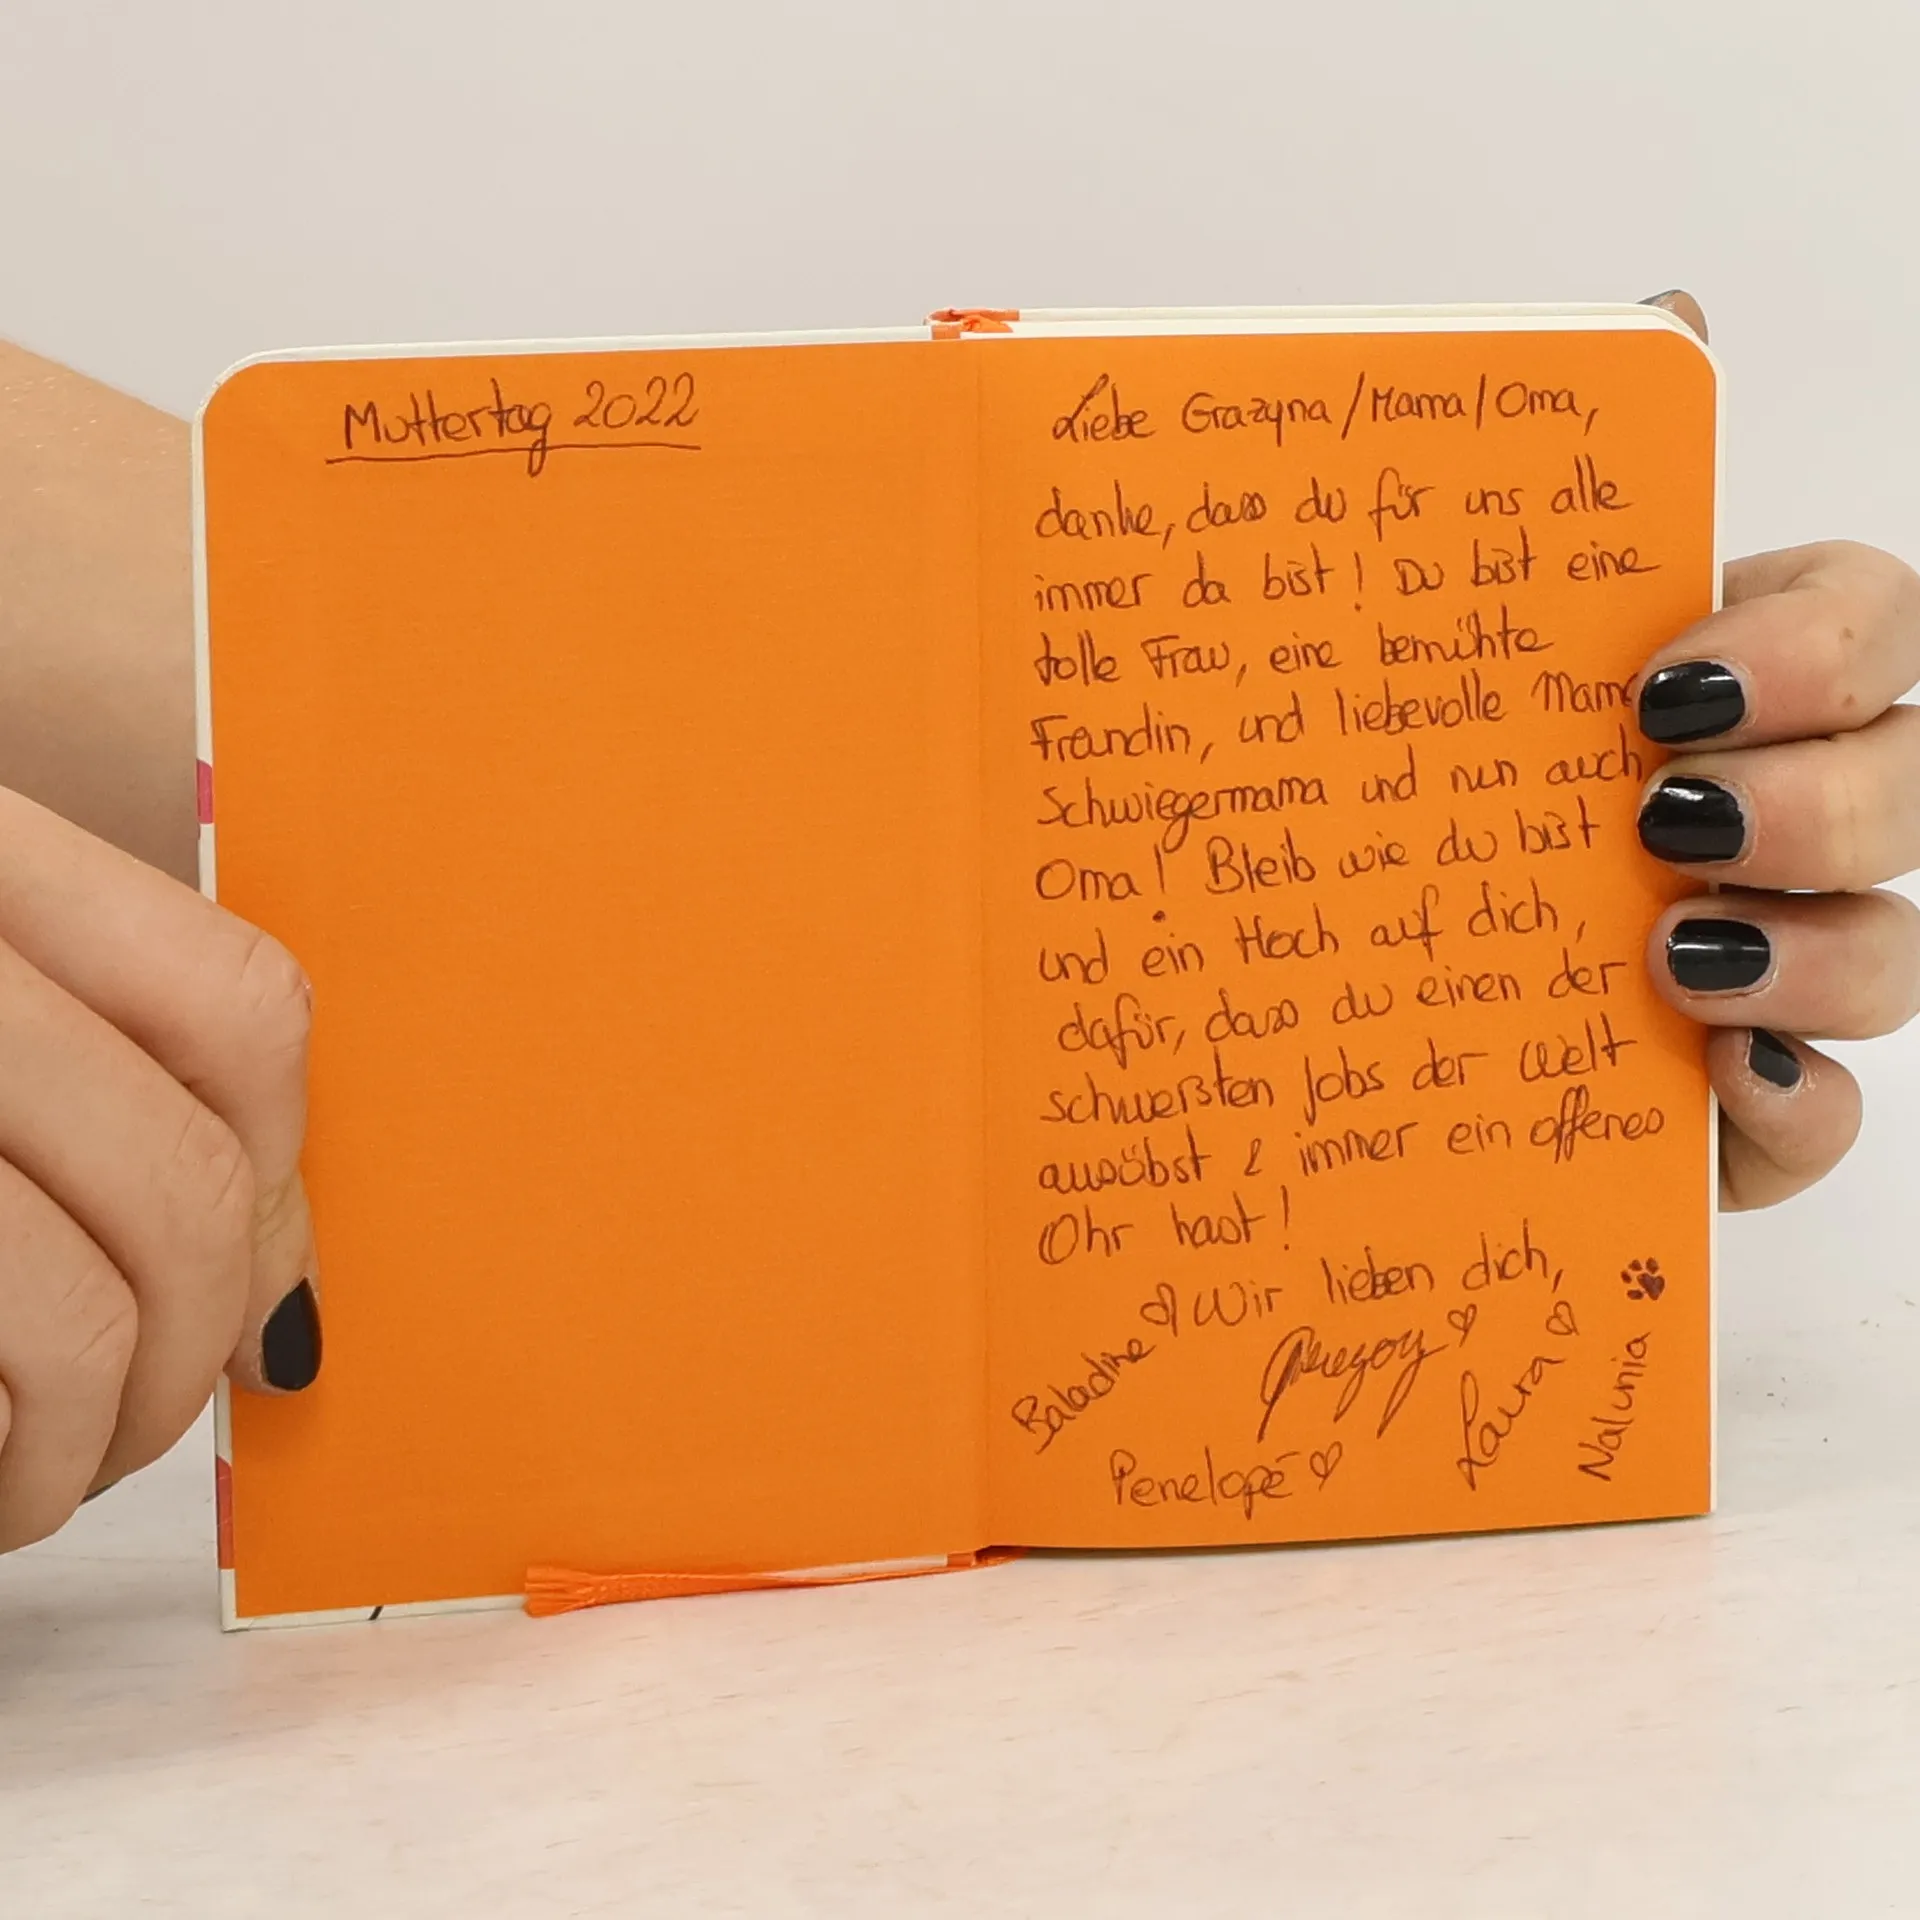 Muttertag 2022
Liebe Grazyna/Mama/Oma,
danke, dass du für uns alle
immer da bist! Du bist eine
tolle Frau, eine bemühte
Freundin, und liebevolle Mama
Schwiegermama und nun auch
Oma! Bleib wie du bist
und ein Hoch auf dich,
dafür, dass du einen der
schwersten Jobs der Welt
ausübst & immer ein offenes
Ohr hast!
Wir lieben dich,
Baladine
Gregory
Laura
Nalunia
Penelopé